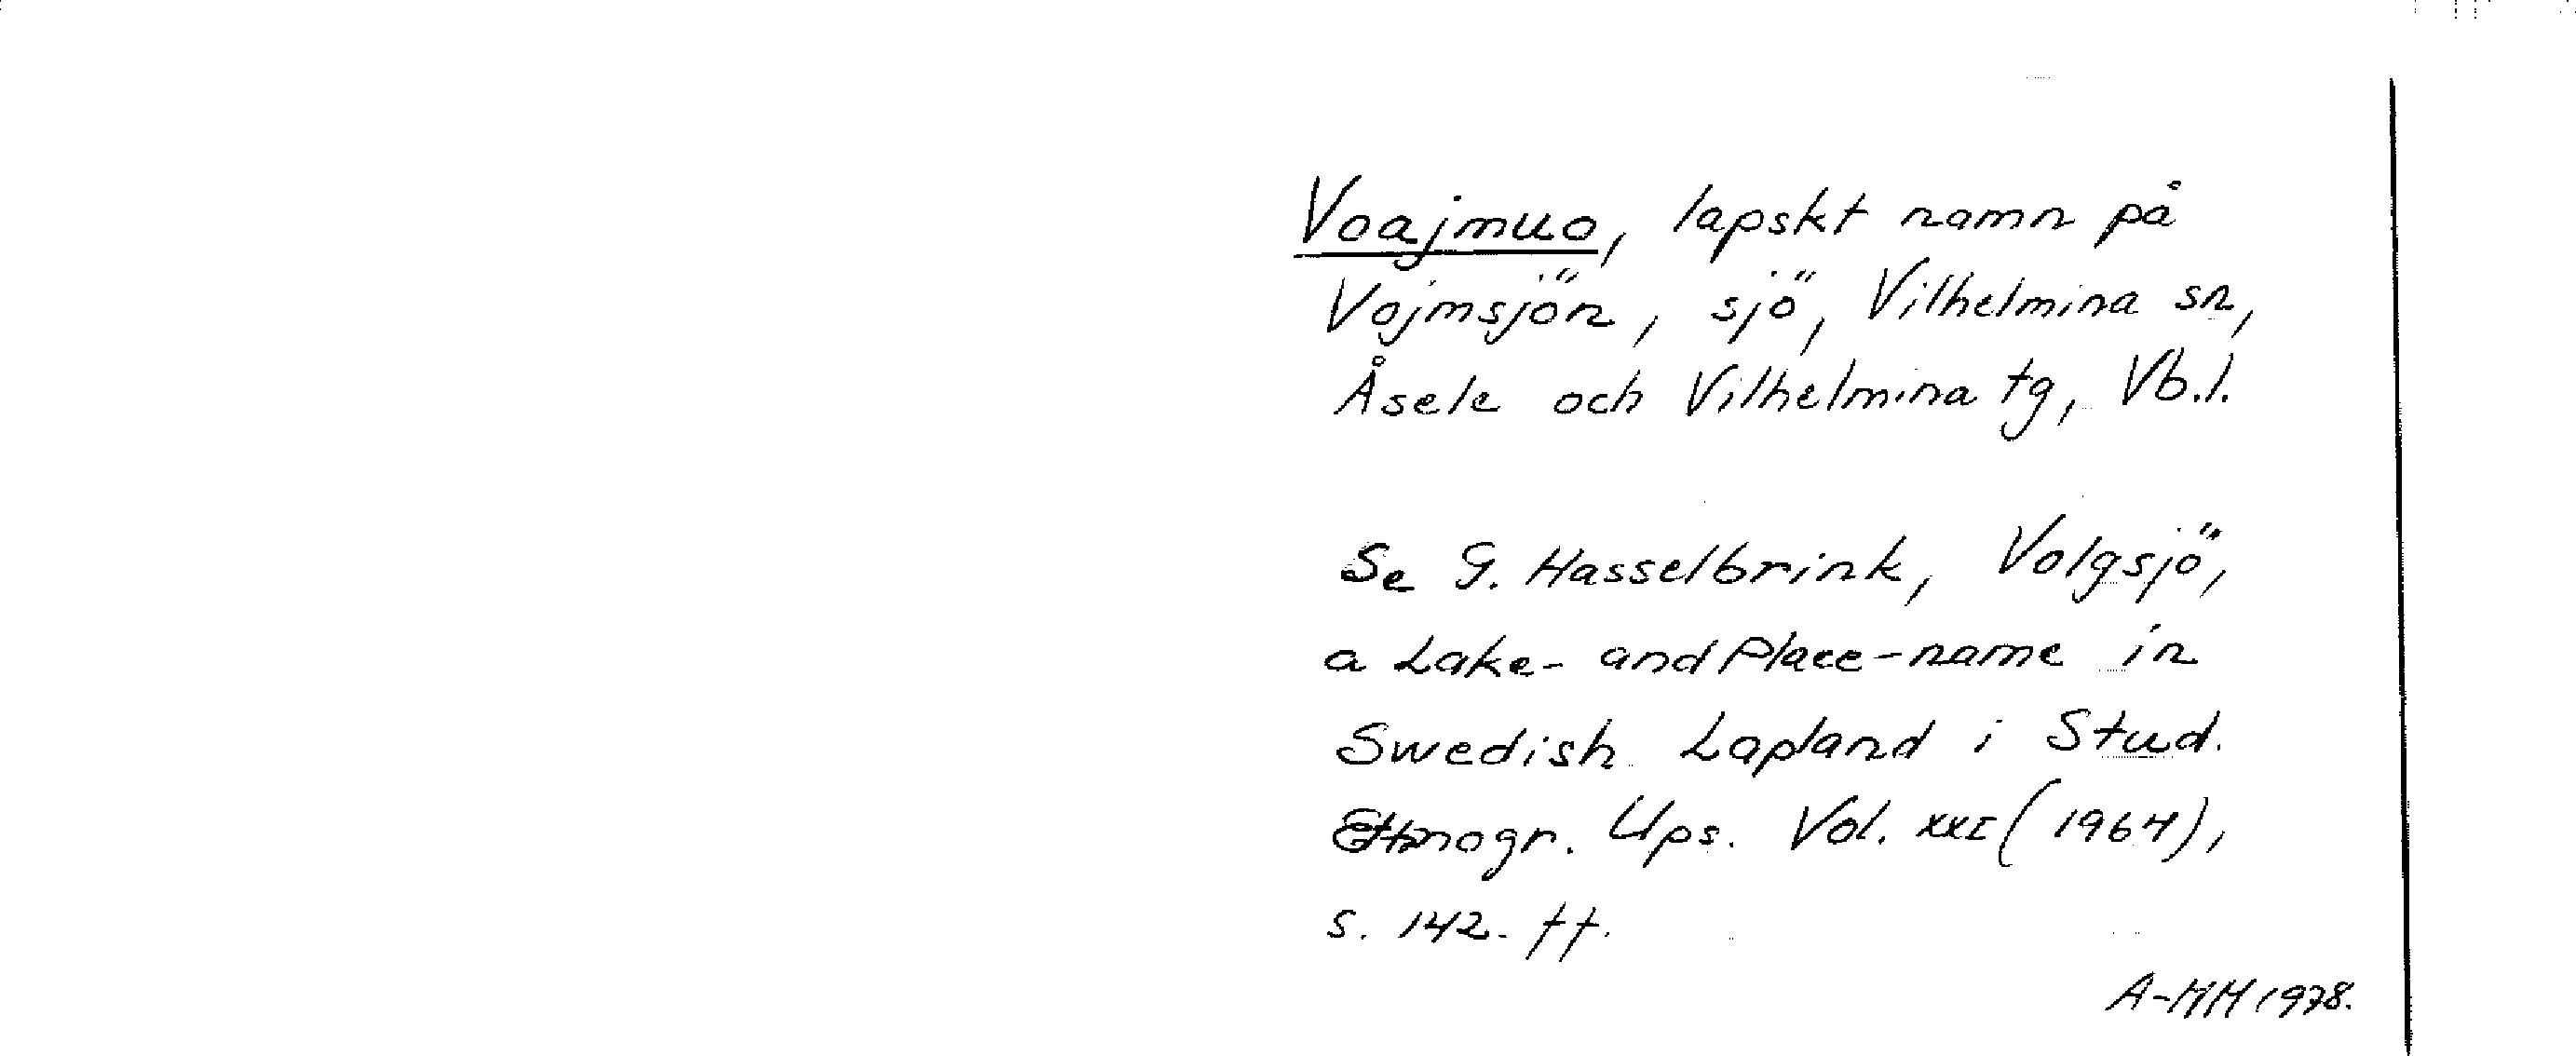 Voajmuo, lapskt namn på
Vojmsjön, sjö, Vilhelmina sn,
Åsele och Vilhelmina tg, Vb.l.
Se G. Hasselbrink, Volgsjö,
a Lake- and Place-name in
Swedish Lapland i Stud.
Ethnogr. Ups. Vol. XXI (1964),
s. 142. ff.
A-MM 1978.